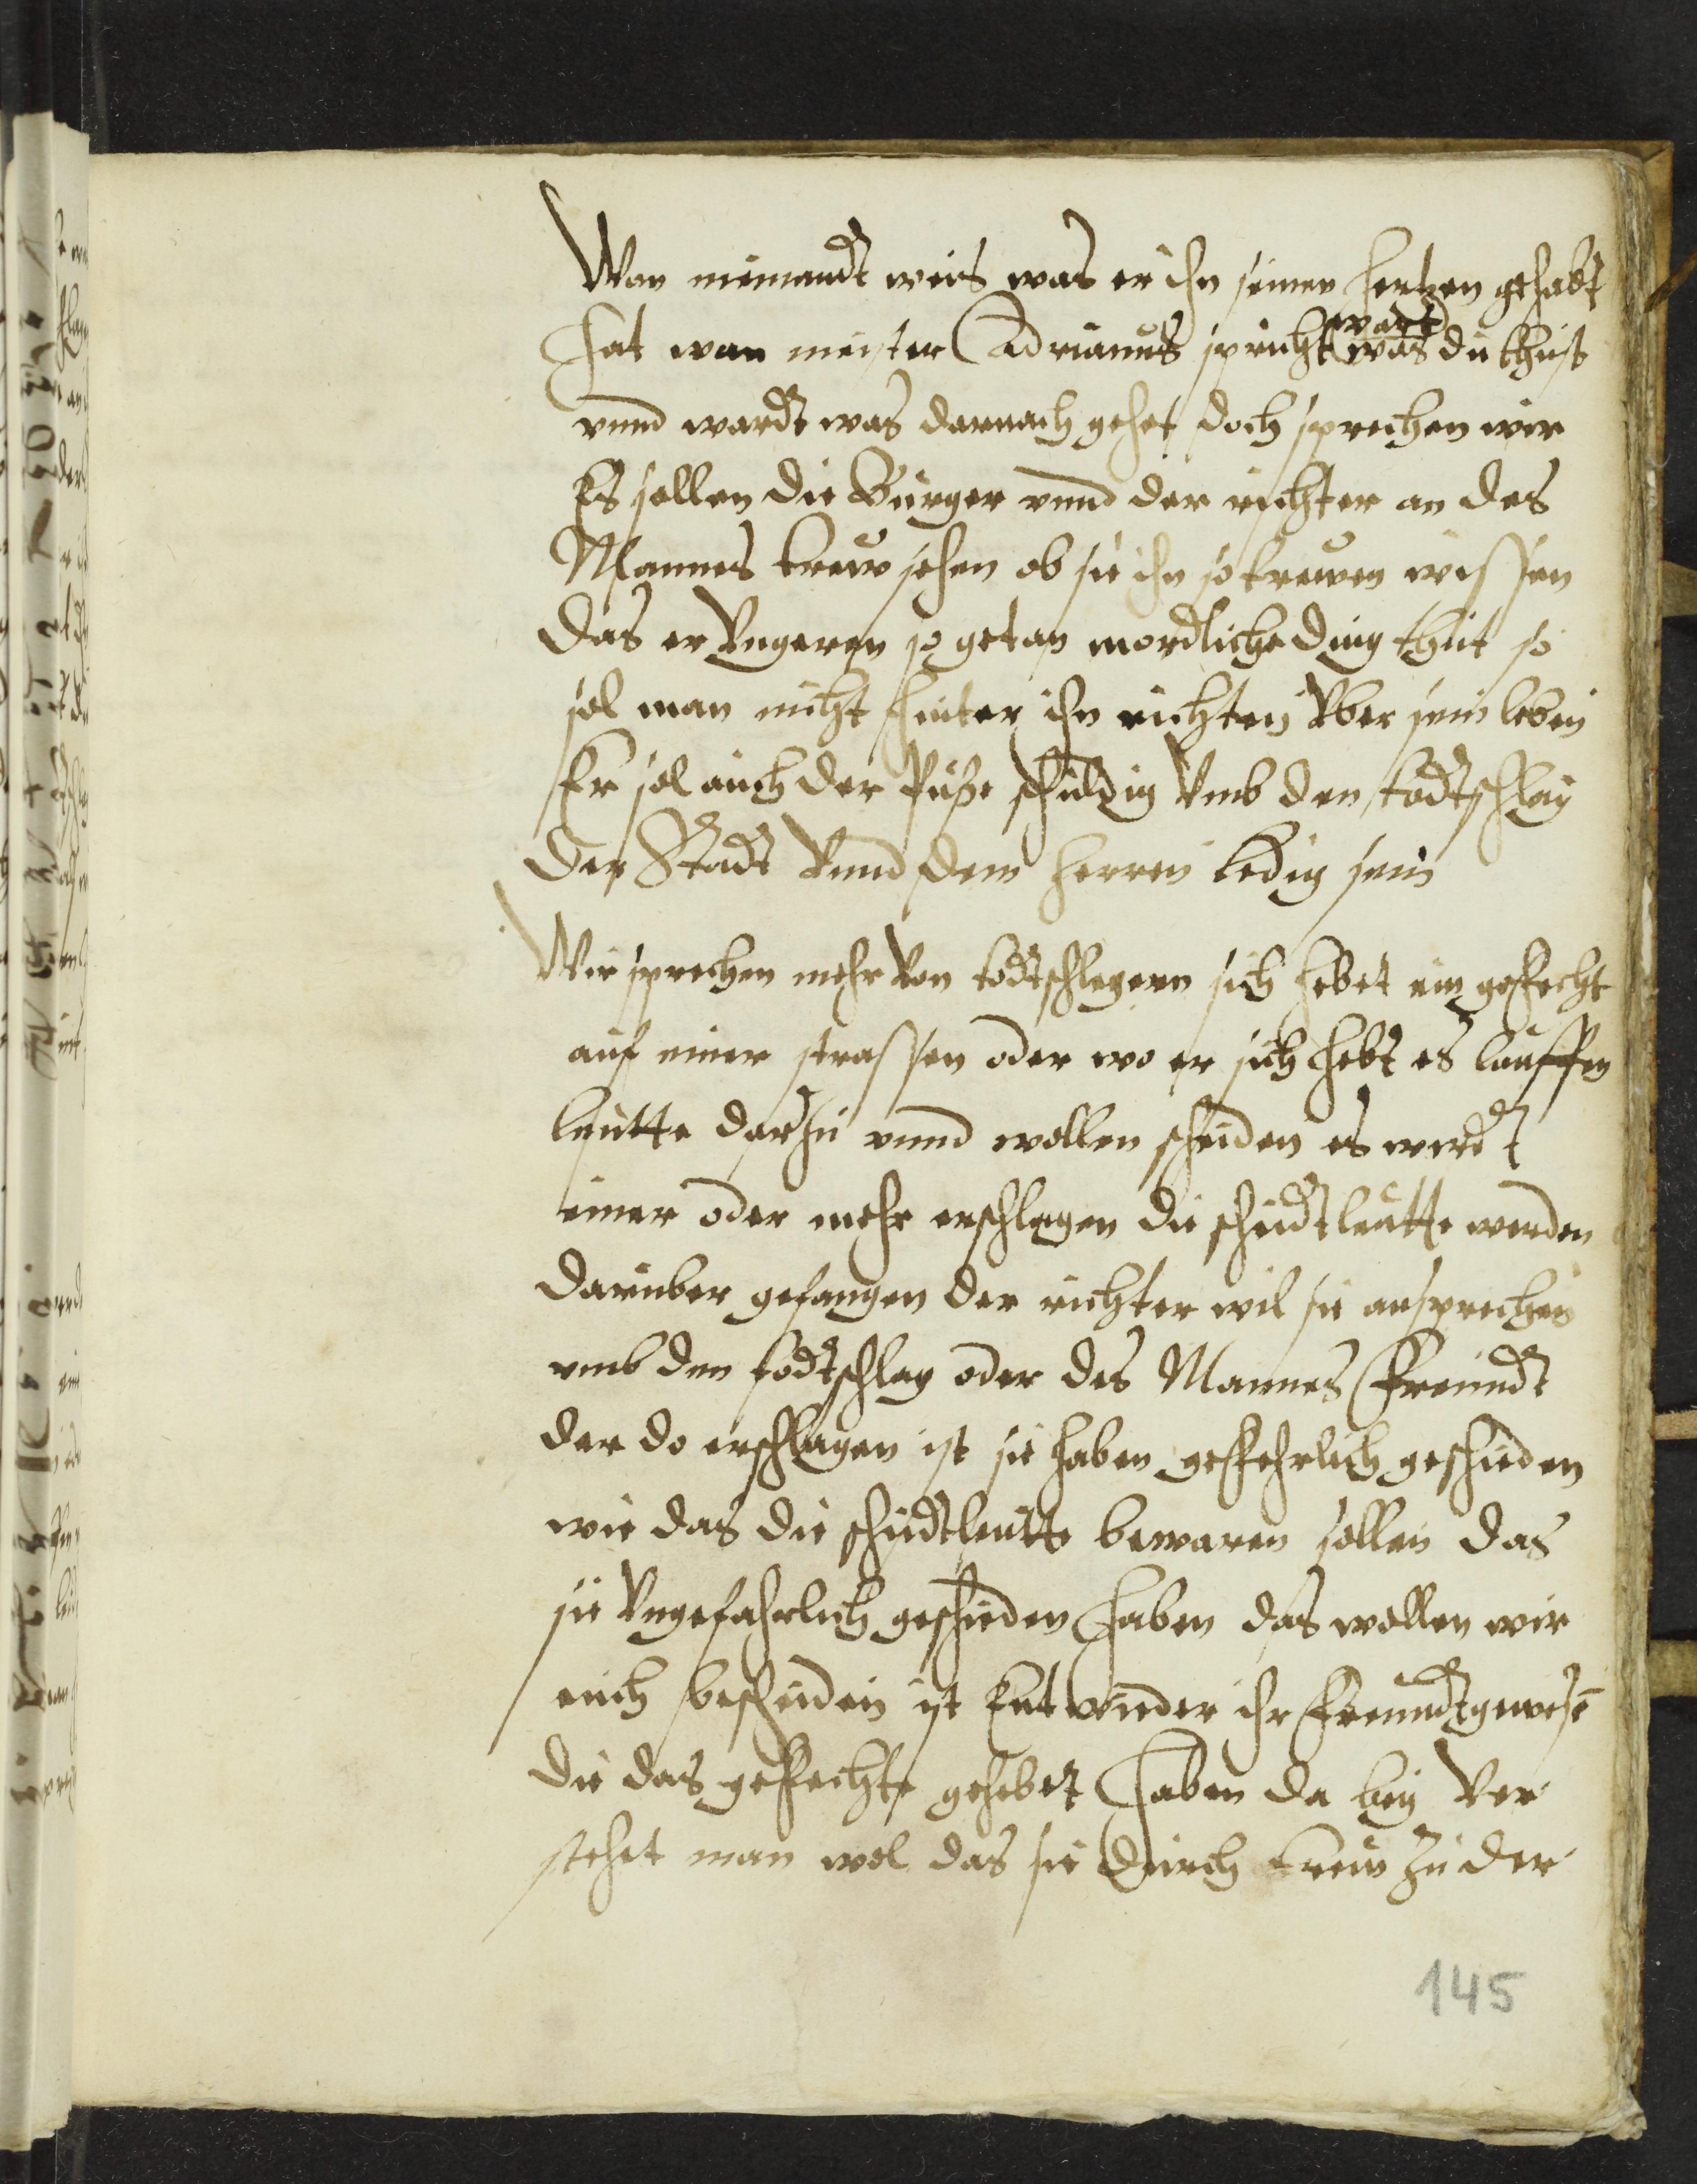 Wan niemandt weis was er ihn seinen hertzen gehabt
hat wan meister Adrianus spricht wart was du thust
vnnd wardt was darnach gehet doch sprechen wir
Es sollen die Burger vnnd der richter an des
Mannes treuw sehen ob sie ihn so treuwen wissen
das er Vngeren so getan mordliche ding thut so
sol man nicht hinter ihn richten Vber sein leben
Er sol auch der Puße schuldig Vmb den todtschlag
der Stadt Vnnd dem herren ledig sein
Wir sprechen mehr Von todtschlegern sich hebet ein gefecht
auf einer strassen oder wo er sich hebt es lauffen
leutte darzu vnnd wollen scheiden es werdt
einer oder mehr erschlagen die scheidtleutte werden
daruber gefangen der richter wil sie ansprechen
vmb den todtschlag oder des Mannes Freundt
der do erschlagen ist sie haben geffehrlich geschieden
wie das die schidtleutte bewaren sollen das
sie Vngefahrlich geschieden haben das wollen wir
euch bescheiden ist Entwieder ihr Freundt gewesē
die das geffechte gehebet haben da bey Ver
stehet man wol das sie durch treuw zu der
145